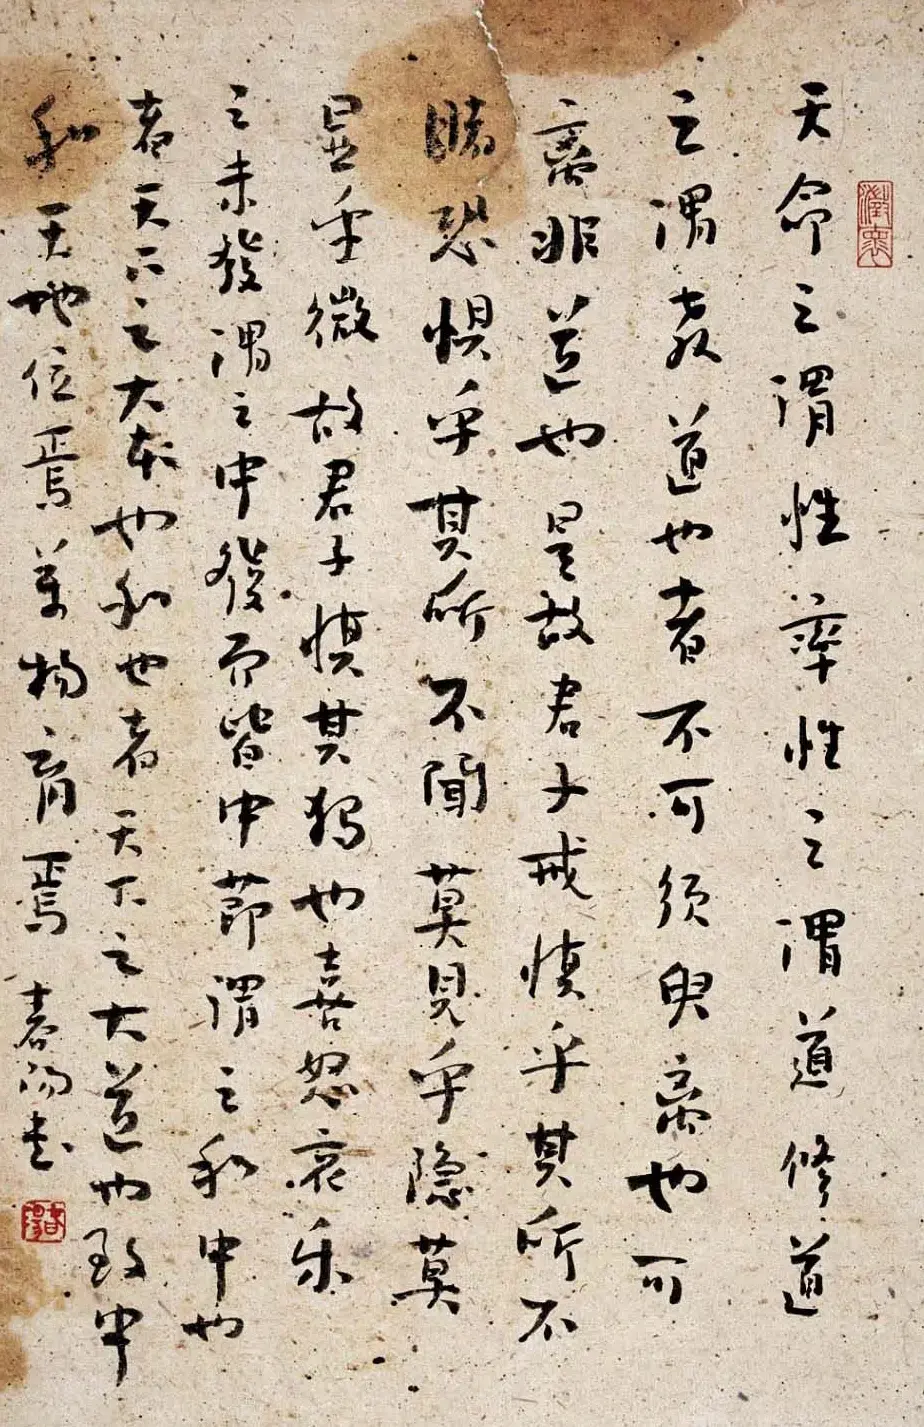 天命之謂性率性之謂道修道
之謂教道也者不可須臾离也可
离非道也是故君子戒慎乎其所不
睹恐惧乎其所不聞莫見乎隐莫
显乎微故君子慎其独也喜怒哀乐
之未發謂之中發而皆中節謂之和中也
者天下之大本也和也者天下之大道也致中
和天地位焉萬物育焉 春阳书